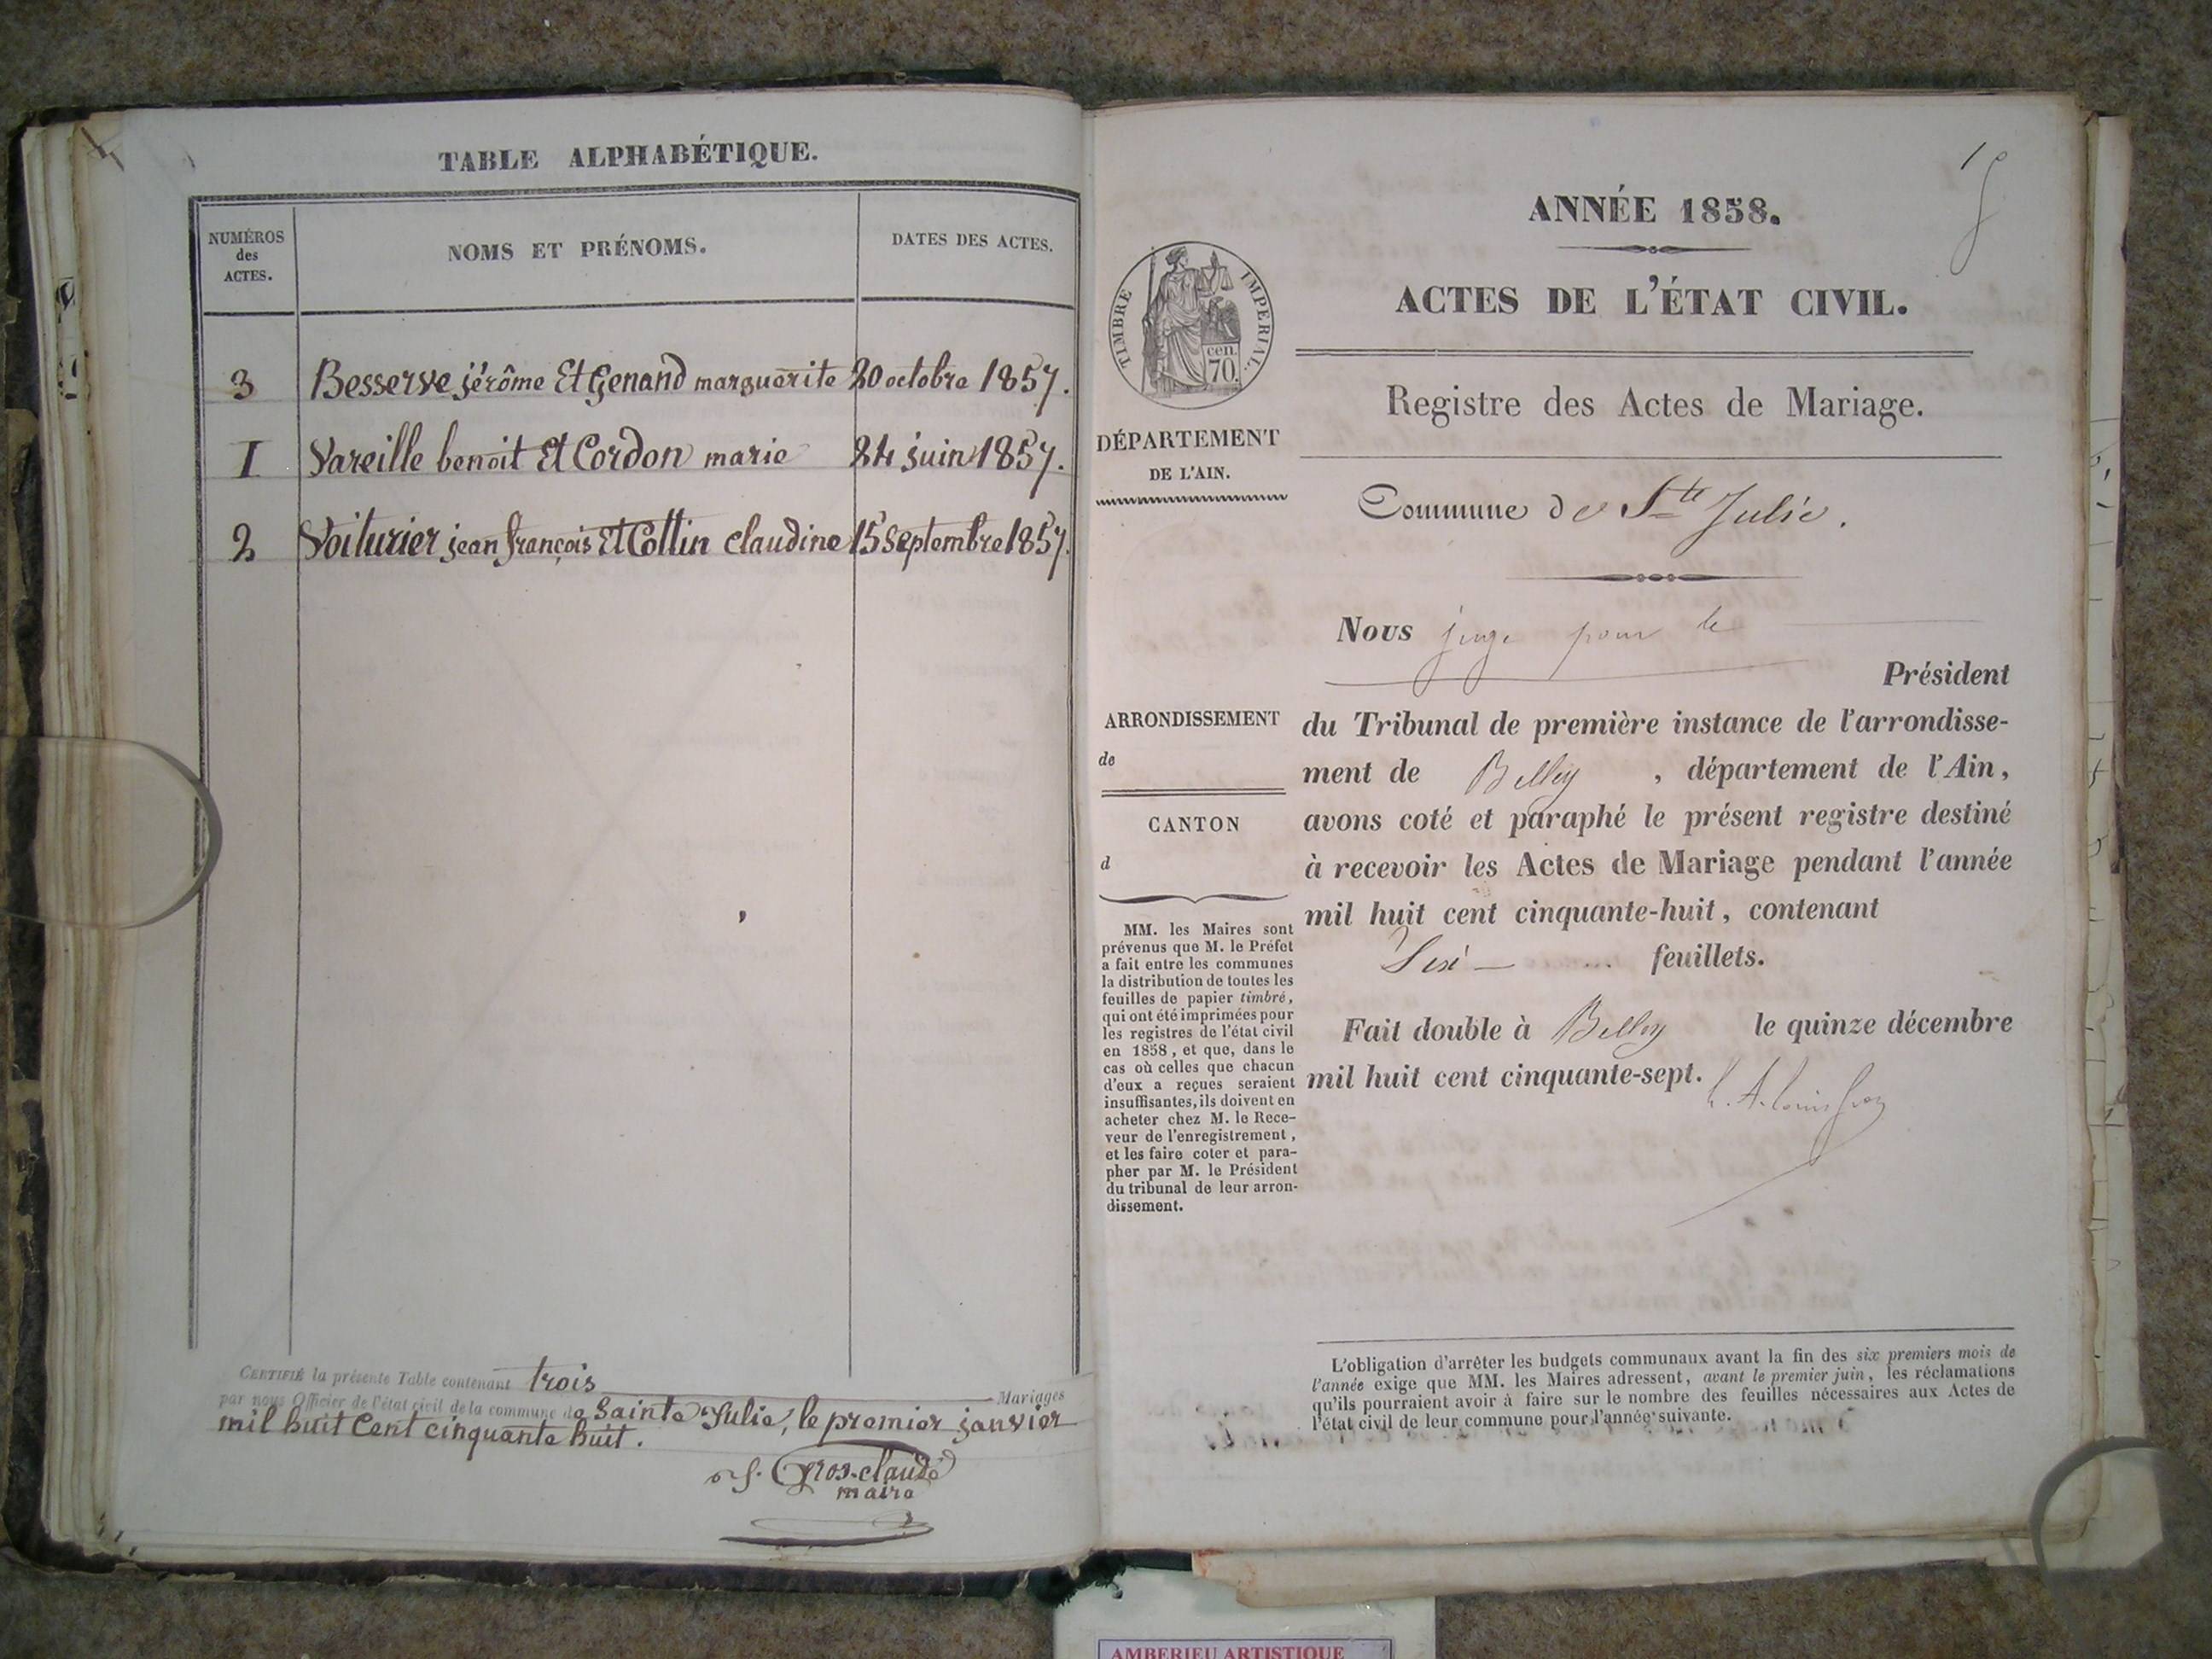 TABLE ALPHABÉTIQUE.
NUMÉROS
des
ACTES.
NOMS ET PRÉNOMS.
DATES DES ACTES.
3 Besserve jérôme Et Genand marguerite 20 octobre 1857.
1 Vareille benoit Et Cordon marie 24 juin 1857.
2 Voiturier jean françois Et Collin claudine 15 septembre 1857.
CERTIFIÉ la présente Table contenant trois Mariages
par nous Officier de l'état civil de la commune de Sainte Julie, le premier janvier
mil huit Cent cinquante huit.
Gros-claude
maire
ANNÉE 1858.
ACTES DE L'ÉTAT CIVIL.
TIMBRE IMPÉRIAL.
cen.
70.
Registre des Actes de Mariage.
DÉPARTEMENT
DE L'AIN.
Commune de Ste Julie.
Nous juge pour le
Président
ARRONDISSEMENT
de
CANTON
d
du Tribunal de première instance de l'arrondisse-
ment de Belley, département de l'Ain,
avons coté et paraphé le présent registre destiné
à recevoir les Actes de Mariage pendant l'année
mil huit cent cinquante-huit, contenant
feuillets.
Fait double à Belley le quinze décembre
mil huit cent cinquante-sept.
MM. les Maires sont
prévenus que M. le Préfet
a fait entre les communes
la distribution de toutes les
feuilles de papier timbré,
qui ont été imprimées pour
les registres de l'état civil
en 1858, et que, dans le
cas où celles que chacun
d'eux a reçues seraient
insuffisantes, ils doivent en
acheter chez M. le Rece-
veur de l'enregistrement,
et les faire coter et para-
pher par M. le Président
du tribunal de leur arron-
dissement.
L'obligation d'arrêter les budgets communaux avant la fin des six premiers mois de
l'année exige que MM. les Maires adressent, avant le premier juin, les réclamations
qu'ils pourraient avoir à faire sur le nombre des feuilles nécessaires aux Actes de
l'état civil de leur commune pour l'année suivante.
AMBERIEU ARTISTIQUE